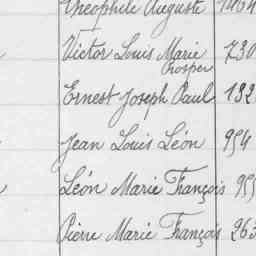 Théophile Auguste
Victor Louis Marie 730
Prosper
Ernest Joseph Paul 132
Jean Louis Léon 954
Léon Marie François 955
Pierre Marie François 263